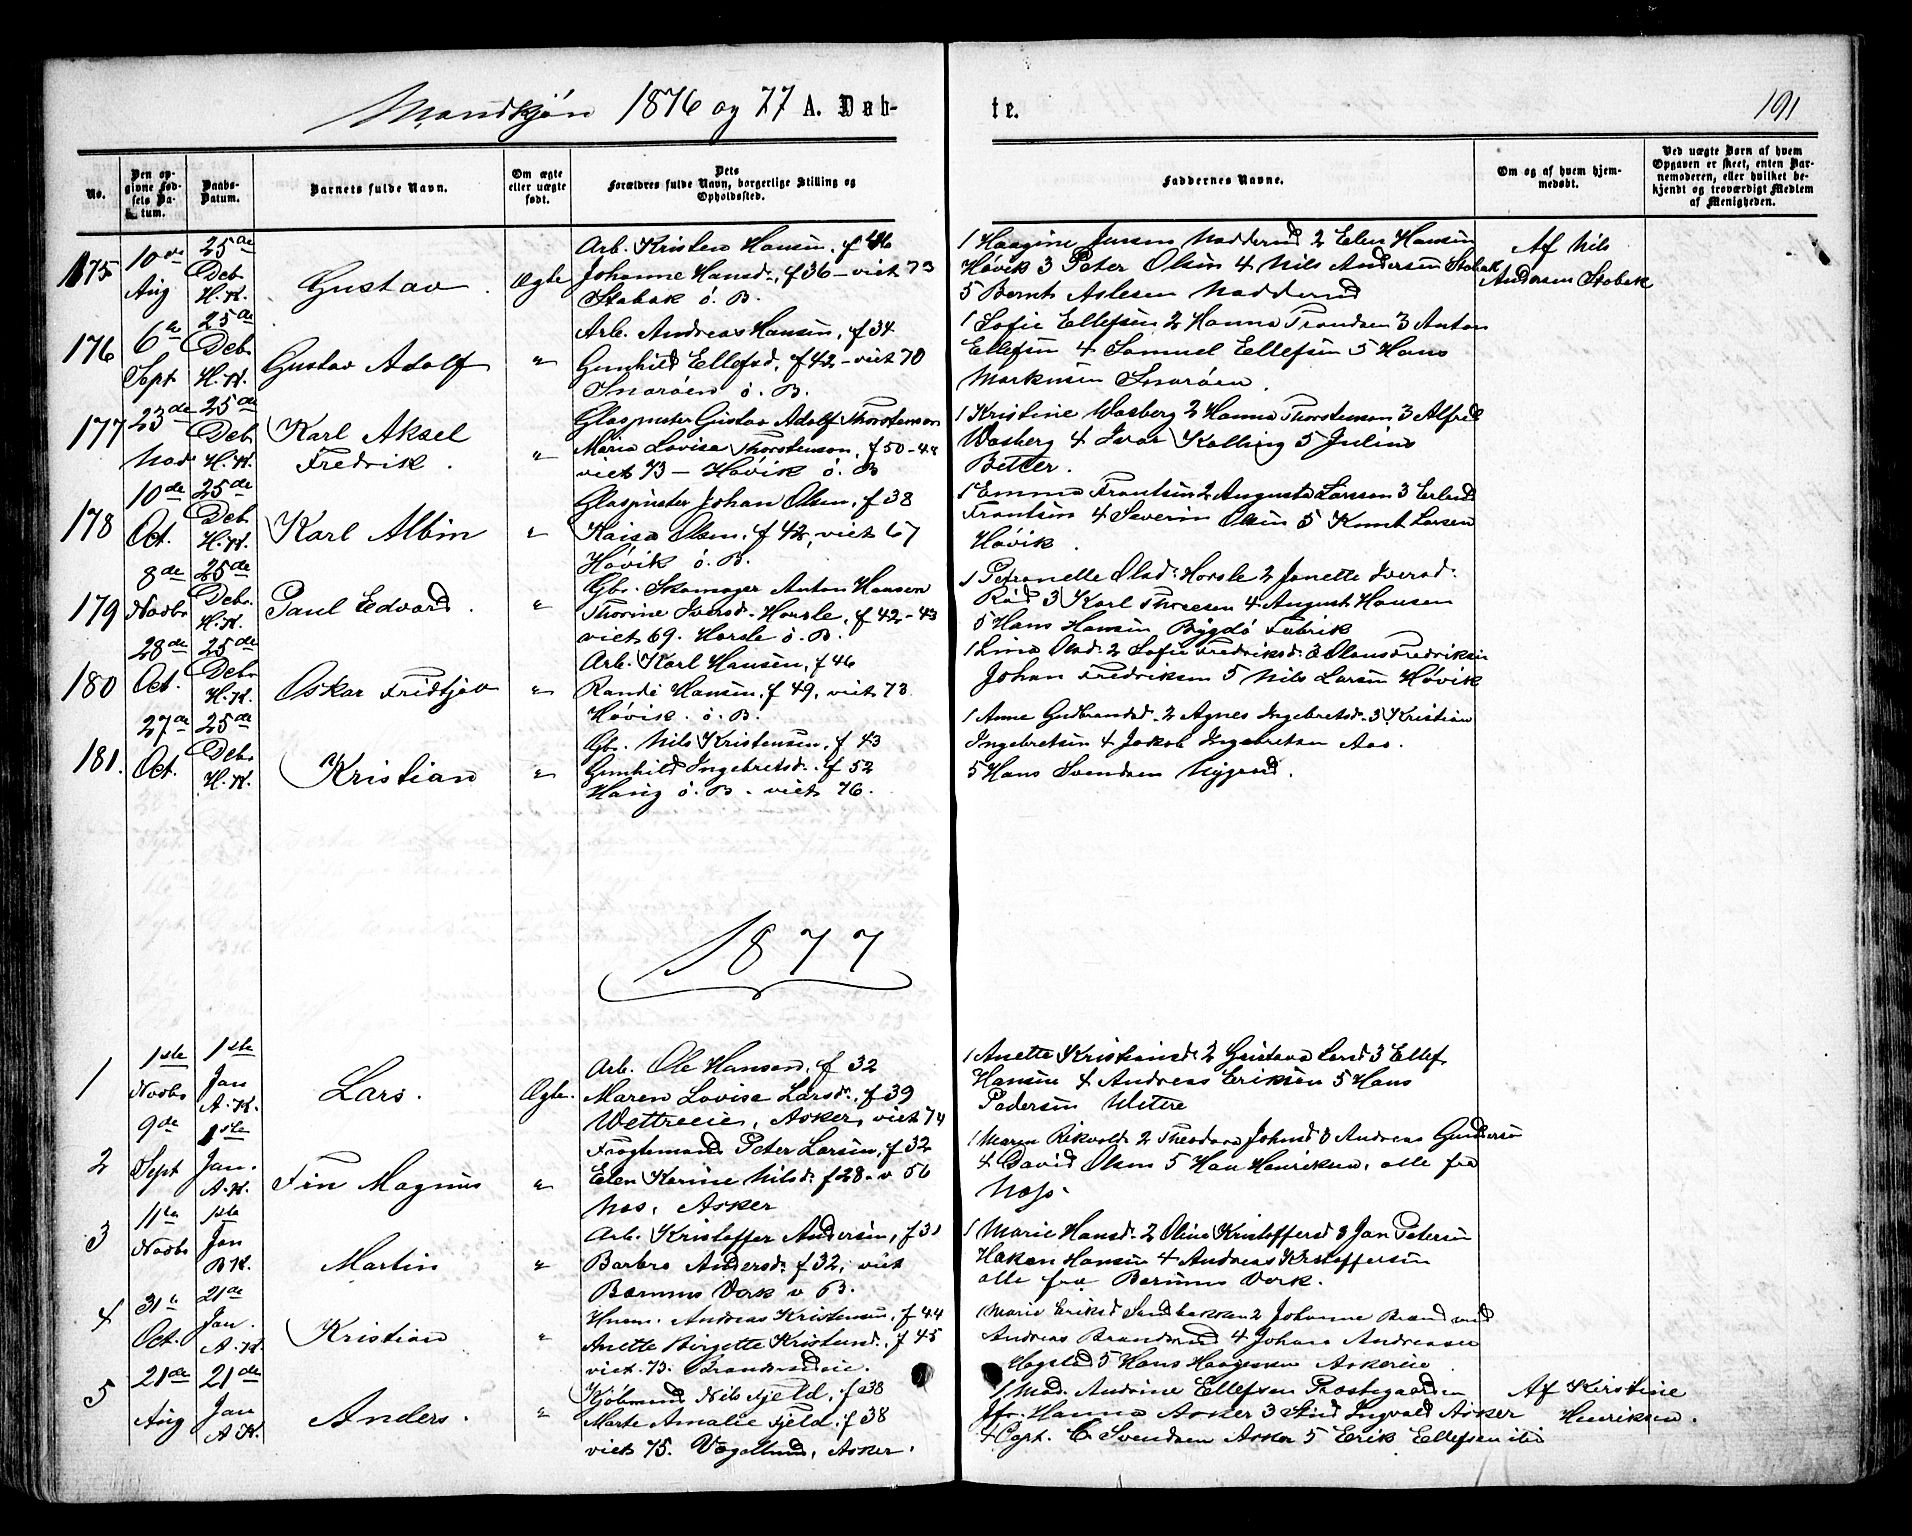 Mandkjøn 1876 og 77 A. Døbte. 191
No.
Den opgivne Fødsels Datum.
Daabs-Datum.
Barnets fulde Navn.
Om ægte eller uægte født.
Dets Forældres fulde Navn, borgerlige Stilling og Opholdssted.
Faddernes Navne.
Om og af hvem hjemmedøbt.
Ved uægte Børn af hvem Opgaven er skeet, enten Barnemoderen, eller hvilket bekjendt og troværdigt Medlem af Menigheden.
175
10de Aug
25de Debr H. K.
Gustav
Ægte
Arb. Kristen Hansen, f 46
Johanne Hansd. f 36 – viet 73
Stabæk ö. B.
1 Haagine Jensen Nadderud 2 Elen Hansen
Høvik 3 Peter Olsen 4 Nils Andersen Stabæk
5 Bernt Aslesen Nadderud
Af Nils
Andersen Stabæk
176
6te Sept
25de Debr H. K.
Gustav Adolf
"
Arb. Andreas Hansen, f 34
Gunhild Ellefsd. f 42 – viet 70
Snarøen ö. B.
1 Sofie Ellefsen 2 Hanna Trondsen 3 Anton
Ellefsen 4 Samuel Ellefsen 5 Hans
Markusen Snarøen.
177
23de Nov
25de Debr H. K.
Karl Aksel
Fredrik.
"
Glaspuster Gustav Adolf Thorstenson
Maria Lovisa Thorstenson, f 50 – 48
viet 73 – Høvik ö. B
1 Kristine Wasberg 2 Hanna Thorstenson 3 Alfred
Wasberg 4 Ivar Kolling 5 Julius
Better.
178
10de Oct.
25de Debr H. K.
Karl Albin
"
Glaspuster Johan Olsen, f 38
Kaisa Olsen. f 42, viet 67
Høvik ö. B.
1 Emma Frantsen 2 Augusta Larsson 3 Erland
Frantsen 4 Severin Olsen 5 Knut Larsen
Høvik.
179
8de Novbr
25de Debr. H. K.
Paul Edvard.
"
Gbr. Skomager Anton Hansen
Thorine Iversd. Horsle, f 42 – 43
viet 69. Horsle ö. B.
1 Petronelle Olsd. Horsle 2 Janette Iversd.
Rød 3 Karl Thoresen 4 August Hansen
5 Hans Hansen Bygdö Fabrik
180
28de Oct.
25de Debr H. K.
Oskar Fridtjov
"
Arb. Karl Hansen, f 46
Randi Hansen, f 49, viet 73.
Høvik. ö. B.
1 Lina Olsd. 2 Sofie Fredriksd. 3 Olaus Fredriksen
Johan Fredriksen 5 Nils Larsen Høvik
181.
27de Oct.
25de Debr H. K.
Kristian
"
Gbr. Nils Kristensen, f 43
Gunhild Ingebretsd. f 52
Haug ö. B. viet 76.
1 Anne Gudbrandsd. 2 Agnes Ingebretsd. 3 Kristian
Ingebretsen 4 Jakob Ingebretsen Aas.
5 Hans Svendsen Nygard.
1877
1
1ste Novbr
1ste Jan A. K.
Lars.
Ægte.
Arb. Ole Hansen, f 32
Maren Lovise Larsd. f 39
Wettreeie, Asker, viet 74
1 Anette Kristiansd. 2 Gustava Larsd 3 Ellef
Hansen 4 Andreas Eriksen 5 Hans
Pedersen Wettre
2
9de Sept
1ste Jan. A. K.
Fin Magnus
"
Fragtemand Peter Larsen, f 32
Elen Karine Nilsd. f 28. v 56
Næs, Asker
1 Maren Rikvold 2 Theodora Johnsd 3 Andreas Gundersen
4 David Olsen 5 Hans Henriksen, alle fra
Næs.
3
11te Novbr
1ste Jan B K.
Martin
"
Arb. Kristoffer Andersen, f 31
Barbro Andersd. f 32, viet
Bærums Værk v B.
1 Marie Hansd. 2 Oline Kristoffersd 3 Jan Petersen
Hakan Hansen 4 Andreas Kristoffersen
alle fra Bærums Værk.
4
31te Oct.
21de Jan. A. K.
Kristian
"
Husm. Andreas Kristensen, f 44
Anette Birgette Kristensd. f 45
viet 73. Brandsrudeie.
1 Marie Eriksd Sandbakken 2 Johanne Brandsrud
Andreas Brandsrud 4 Johan Andreassen
Hogstad 5 Hans Haagensen Askereie
5
21de Aug
21de Jan A K.
Anders.
"
Kjøbmand Nils Fjeld, f 38
Marte Amalie Fjeld. f 38
viet 75. Vogellund, Asker.
1 Mad. Andrine Ellefsen Præstegaarden
Jfr. Hanna Asker 3 Stud Ingvald Asker
4 Capt. C Svendsen Asker 5 Erik Ellefsen ibid
Af Kirstine
Henriksen.